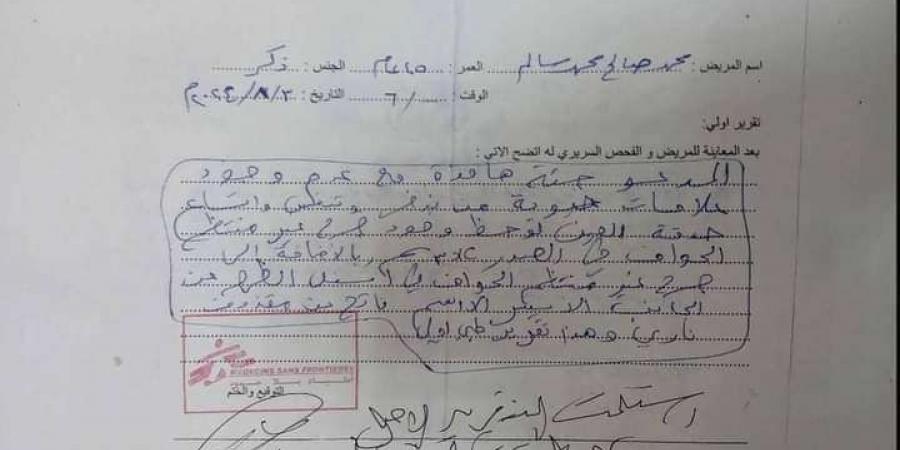 اسم المريض: محمد صالح محمد سالم العمر: ٤٥ عام الجنس: ذكر
الوقت: ٦/ التاريخ: ٢٠٢٤/٨/٣م
تقرير اولي:
بعد المعاينة للمريض و الفحص السريري له اتضح الاتي:
المدعو جثة هامدة مع عدم وجود
علامات حيوية من نبض وتنفس واتساع
حدقة العين لوحظ وجود جرح غير منتظم
الحواف في الصدر بالاضافة الى
جرح غير منتظم الحواف في اسفل الظهر من
الجانب الايسر ناتج من مقذوف
ناري وهذا تقرير طبي اولي
MEDECINS SANS FRONTIERES
أطباء بلا حدود
التوقيع والختم
استلمت التقرير الاصل